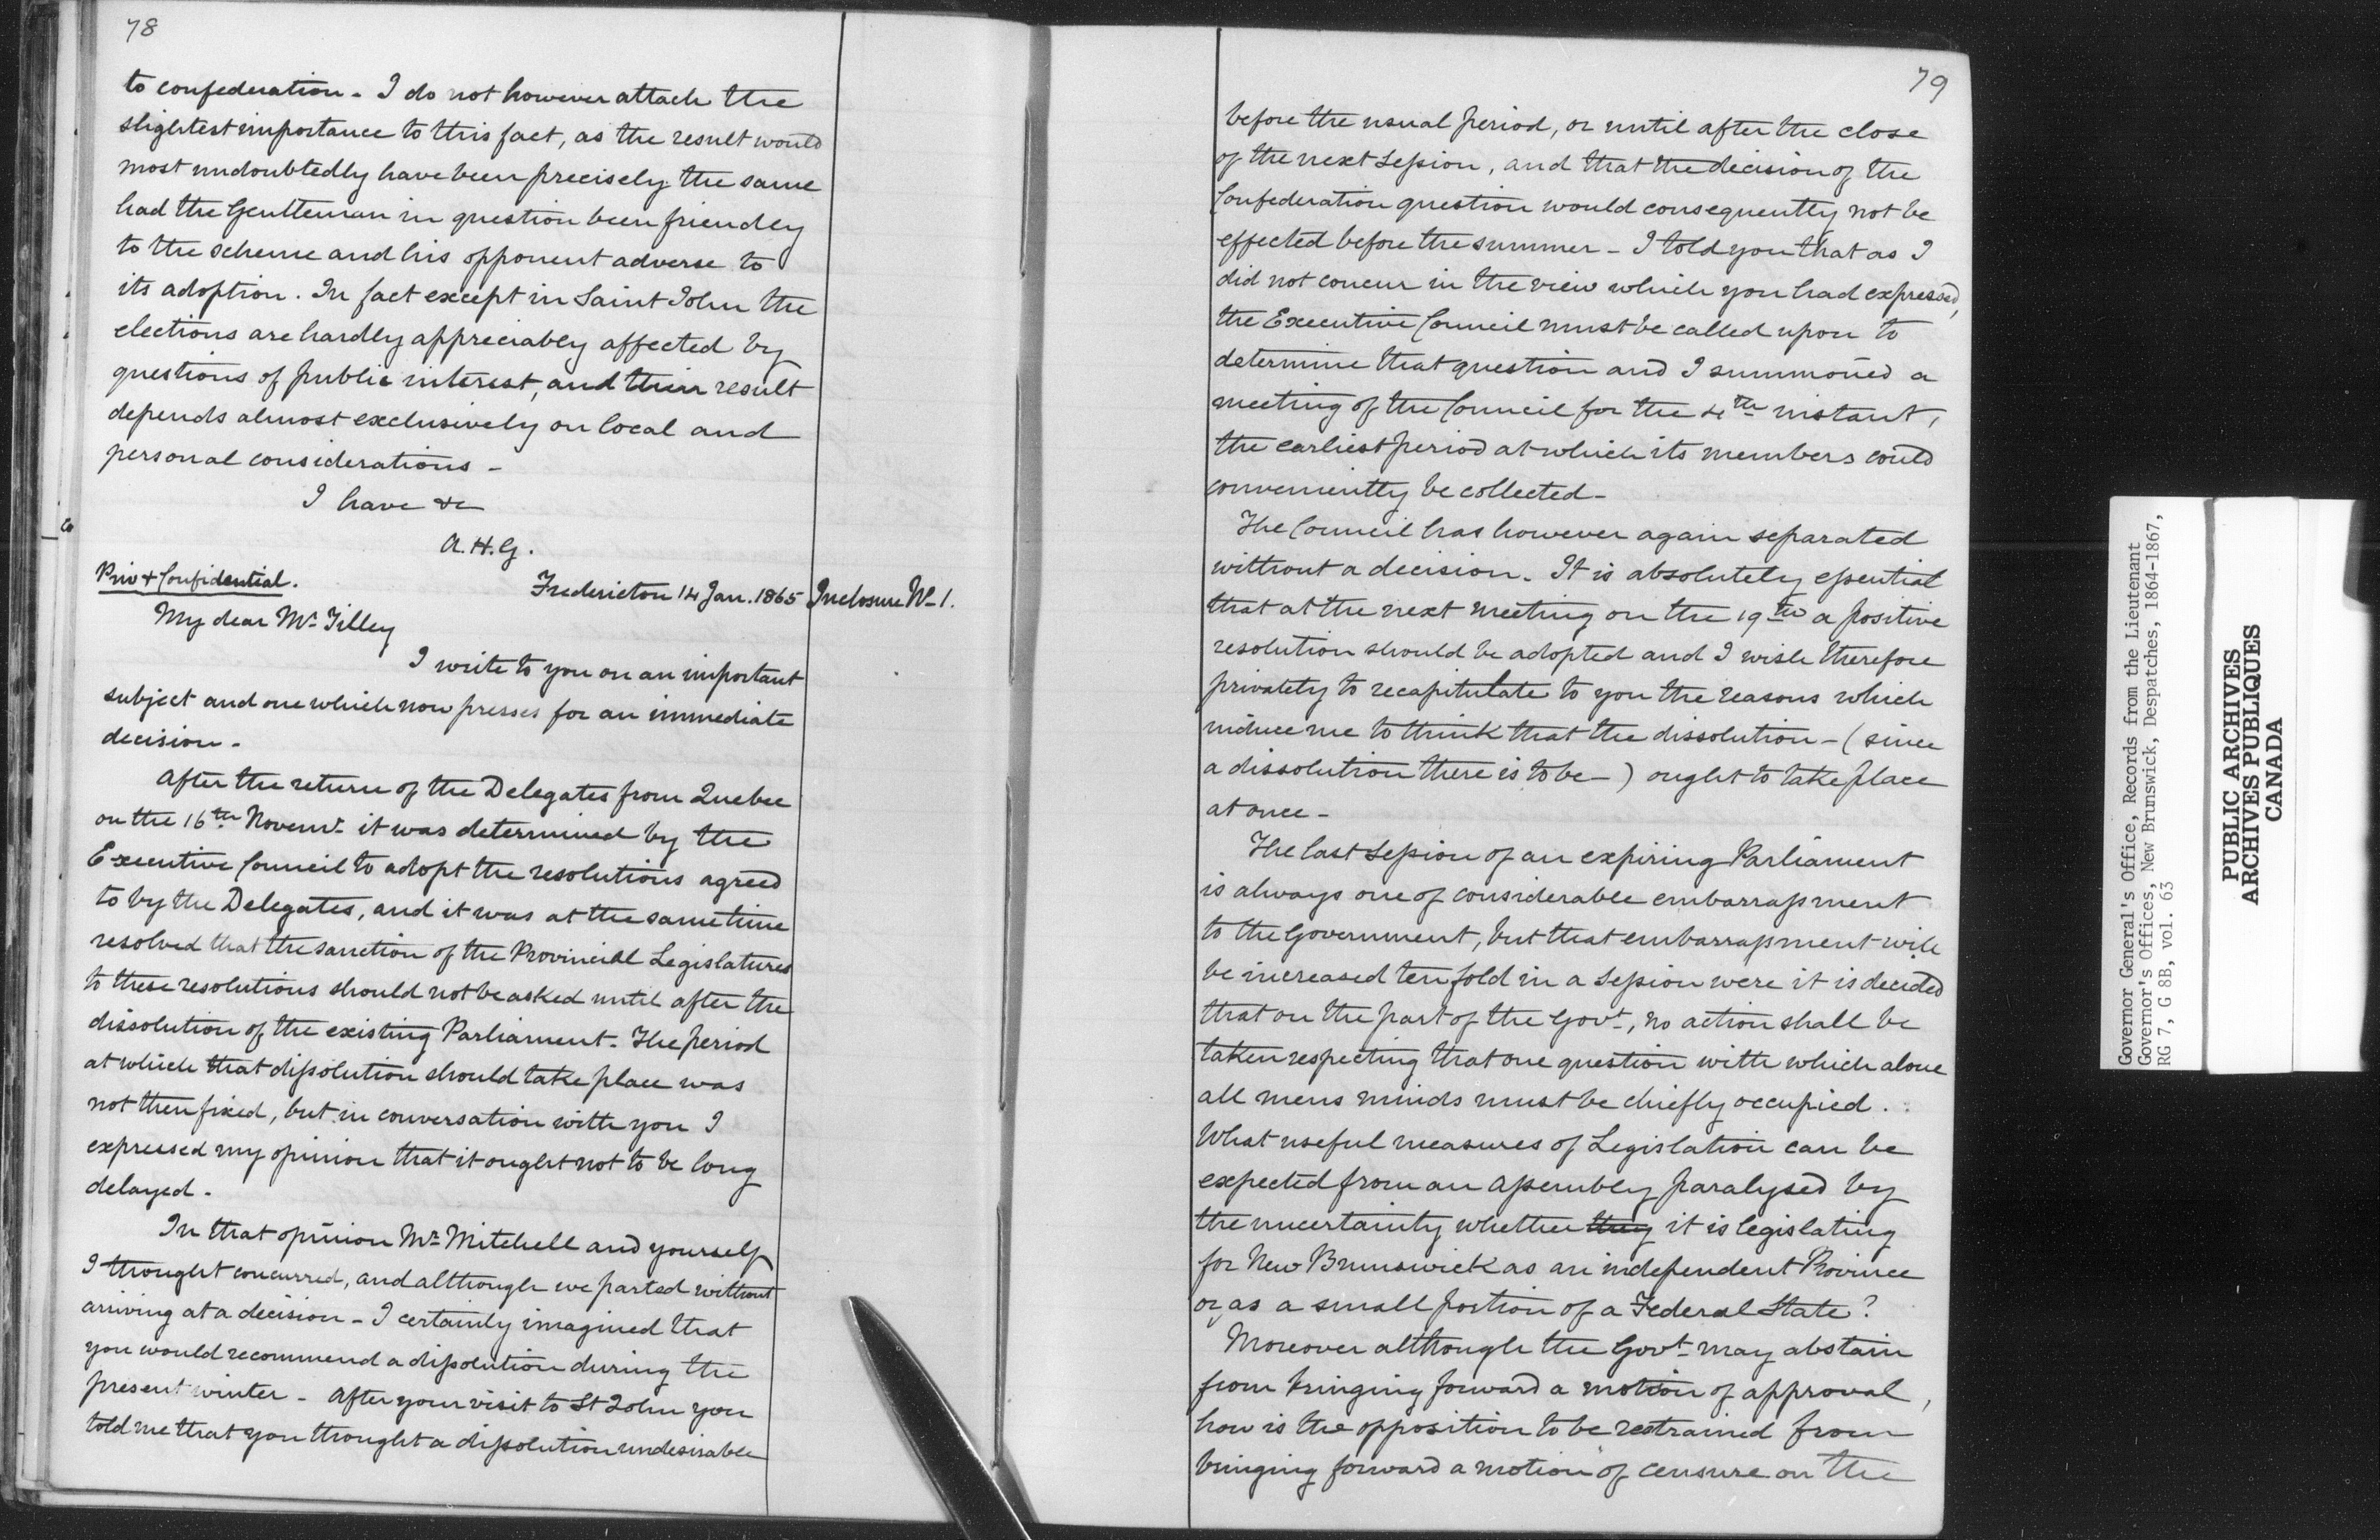 78
to confederation - I do not however attach the
slightest importance to this fact, as the result would
most undoubtedly have been precisely the same
had the Gentleman in question been friendly
to the scheme and his opponent adverse to
its adoption. In fact except in Saint John the
elections are hardly appreciably affected by
questions of public interest, and their result
depends almost exclusively on local and
personal considerations -
I have &c
A.H.G.
Priv & Confidential.
Fredericton 14 Jan. 1865
Inclosure No 1.
My dear Mr Tilley
I write to you on an important
subject and one which now presses for an immediate
decision -
After the return of the Delegates from Quebec
on the 16th Novemr it was determined by the
Executive Council to adopt the resolutions agreed
to by the Delegates, and it was at the same time
resolved that the sanction of the Provincial Legislatures
to these resolutions should not be asked until after the
dissolution of the existing Parliament. The period
at which that dissolution should take place was
not then fixed, but in conversation with you I
expressed my opinion that it ought not to be long
delayed -
In that opinion Mr Mitchell and yourself
I thought concurred, and although we parted without
arriving at a decision - I certainly imagined that
you would recommend a dissolution during the
present winter - After your visit to St John you
told me that you thought a dissolution undesirable
79
before the usual period, or until after the close
of the next Session, and that the decision of the
Confederation question would consequently not be
effected before the summer - I told you that as I
did not concur in the view which you had expressed,
the Executive Council must be called upon to
determine that question and I summoned a
meeting of the Council for the 4th instant,
the earliest period at which its members could
conveniently be collected -
The Council has however again separated
without a decision. It is absolutely essential
that at the next meeting on the 19th a positive
resolution should be adopted and I wish therefore
privately to recapitulate to you the reasons which
induce me to think that the dissolution - (since
a dissolution there is to be -) ought to take place
at once -
The last Session of an expiring Parliament
is always one of considerable embarrassment
to the Government, but that embarrassment will
be increased ten fold in a Session were it is decided
that on the part of the Govt, no action shall be
taken respecting that one question with which alone
all mens minds must be chiefly occupied.
What useful measures of Legislation can be
expected from an Assembly paralysed by
the uncertainty whether they it is legislating
for New Brunswick as an independent Province
or as a small portion of a Federal State?
Moreover although the Govt may abstain
from bringing forward a motion of approval,
how is the opposition to be restrained from
bringing forward a motion of censure on the
Governor General's Office, Records from the Lieutenant
Governor's Offices, New Brunswick, Despatches, 1864-1867,
RG 7, G 8B, vol. 63
PUBLIC ARCHIVES
ARCHIVES PUBLIQUES
CANADA